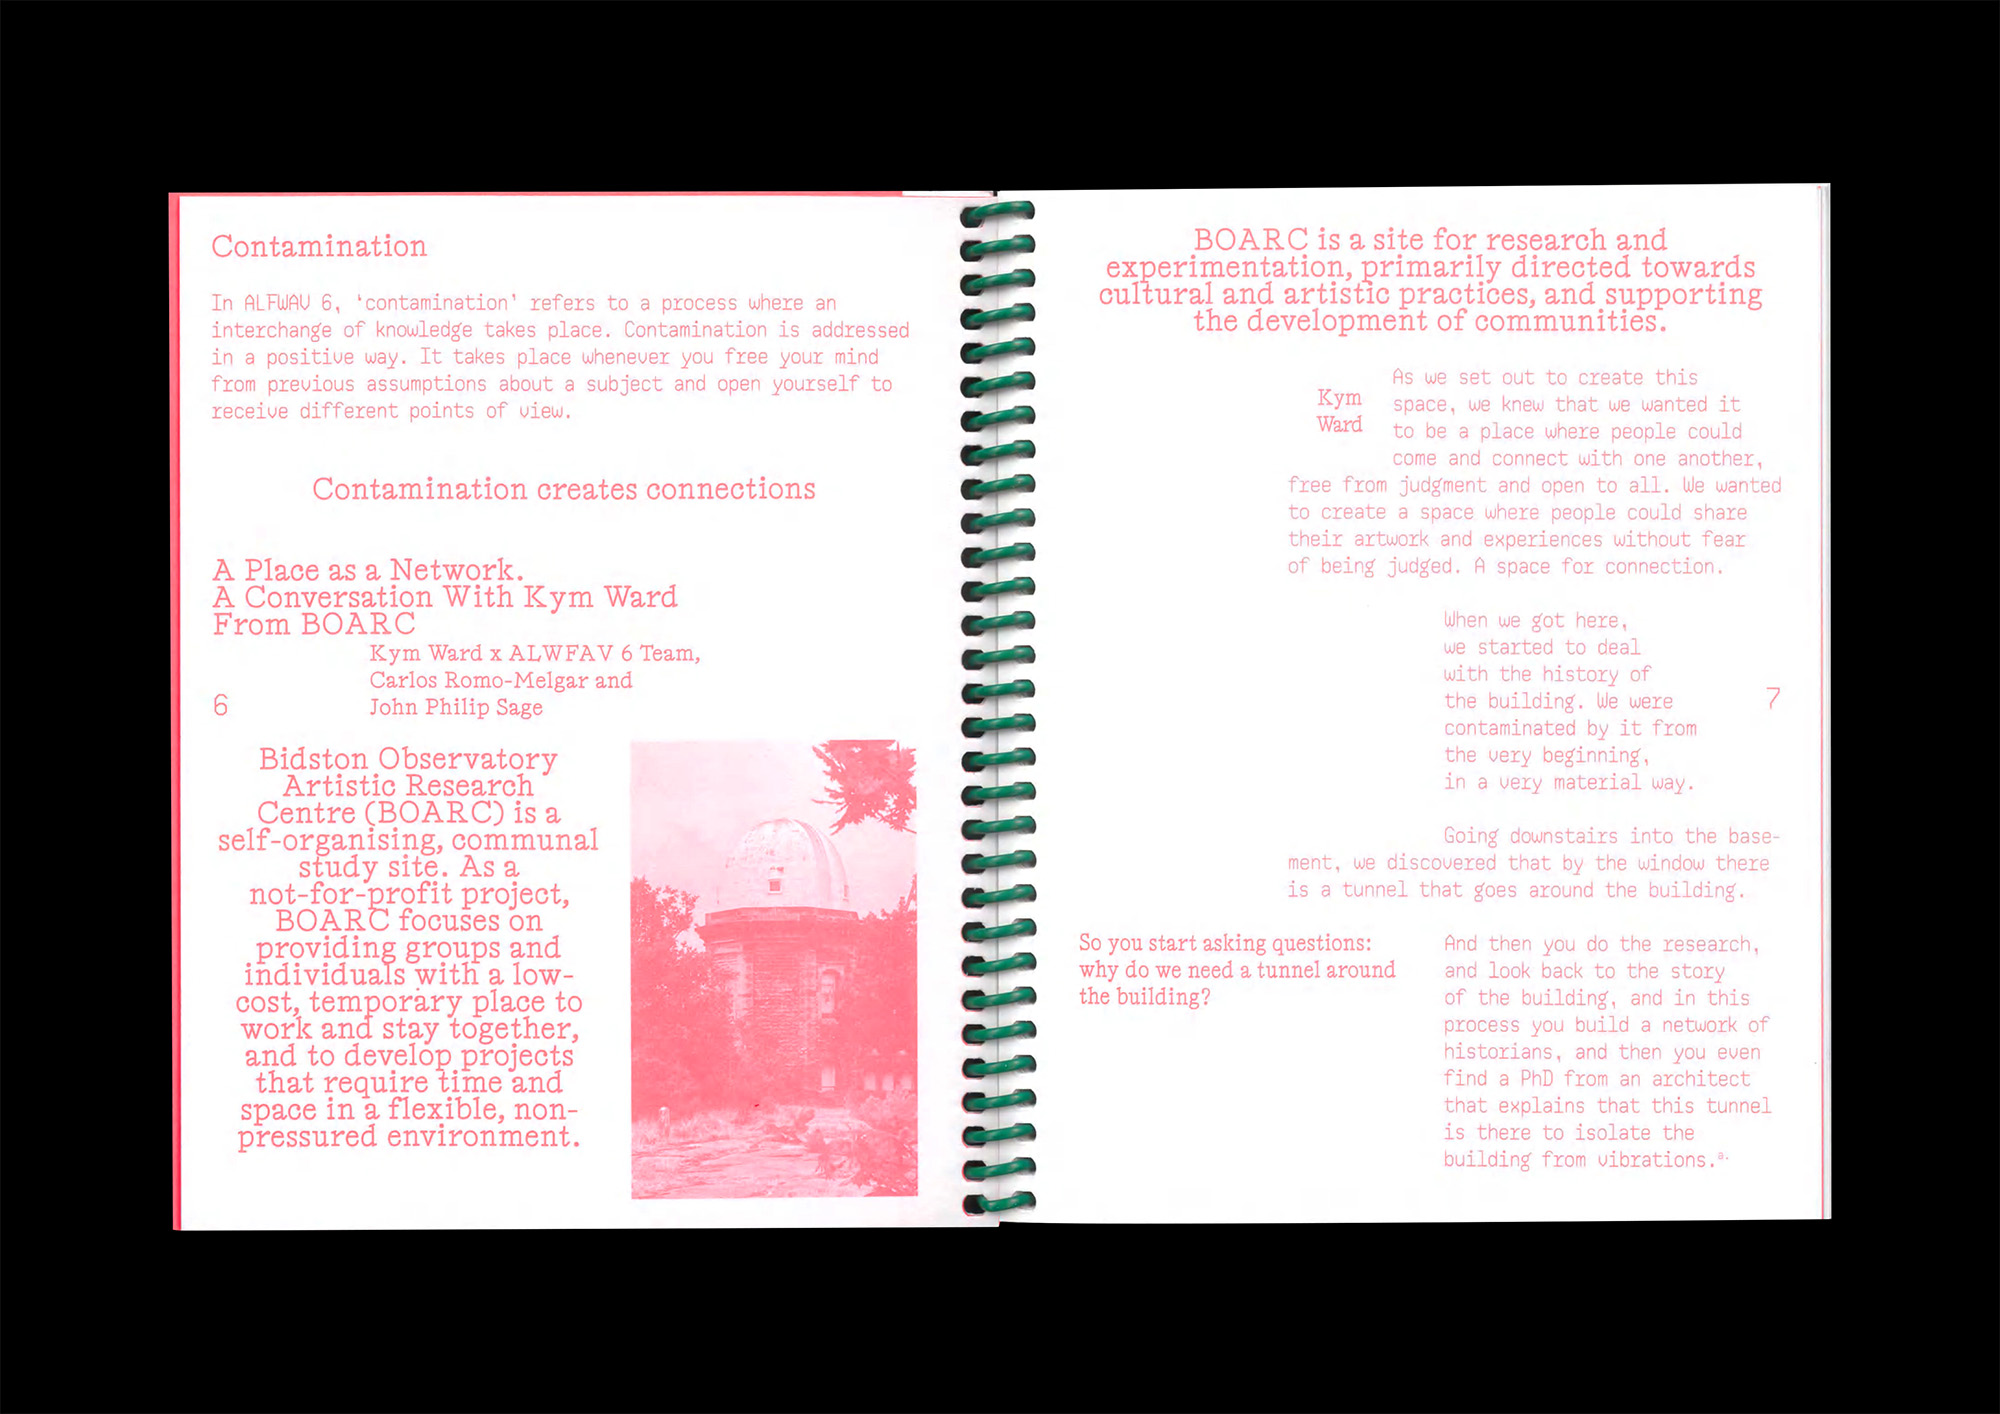 Contamination
In ALFWAV 6, ‘contamination’ refers to a process where an
interchange of knowledge takes place. Contamination is addressed
in a positive way. It takes place whenever you free your mind
from previous assumptions about a subject and open yourself to
receive different points of view.
Contamination creates connections
A Place as a Network.
A Conversation With Kym Ward
From BOARC
Kym Ward x ALWFAV 6 Team,
Carlos Romo-Melgar and
John Philip Sage
6
Bidston Observatory
Artistic Research
Centre (BOARC) is a
self-organising, communal
study site. As a
not-for-profit project,
BOARC focuses on
providing groups and
individuals with a low-
cost, temporary place to
work and stay together,
and to develop projects
that require time and
space in a flexible, non-
pressured environment.
BOARC is a site for research and
experimentation, primarily directed towards
cultural and artistic practices, and supporting
the development of communities.
Kym
Ward
As we set out to create this
space, we knew that we wanted it
to be a place where people could
come and connect with one another,
free from judgment and open to all. We wanted
to create a space where people could share
their artwork and experiences without fear
of being judged. A space for connection.
When we got here,
we started to deal
with the history of
the building. We were
contaminated by it from
the very beginning,
in a very material way.
7
Going downstairs into the base-
ment, we discovered that by the window there
is a tunnel that goes around the building.
So you start asking questions:
why do we need a tunnel around
the building?
And then you do the research,
and look back to the story
of the building, and in this
process you build a network of
historians, and then you even
find a PhD from an architect
that explains that this tunnel
is there to isolate the
building from vibrations.a.